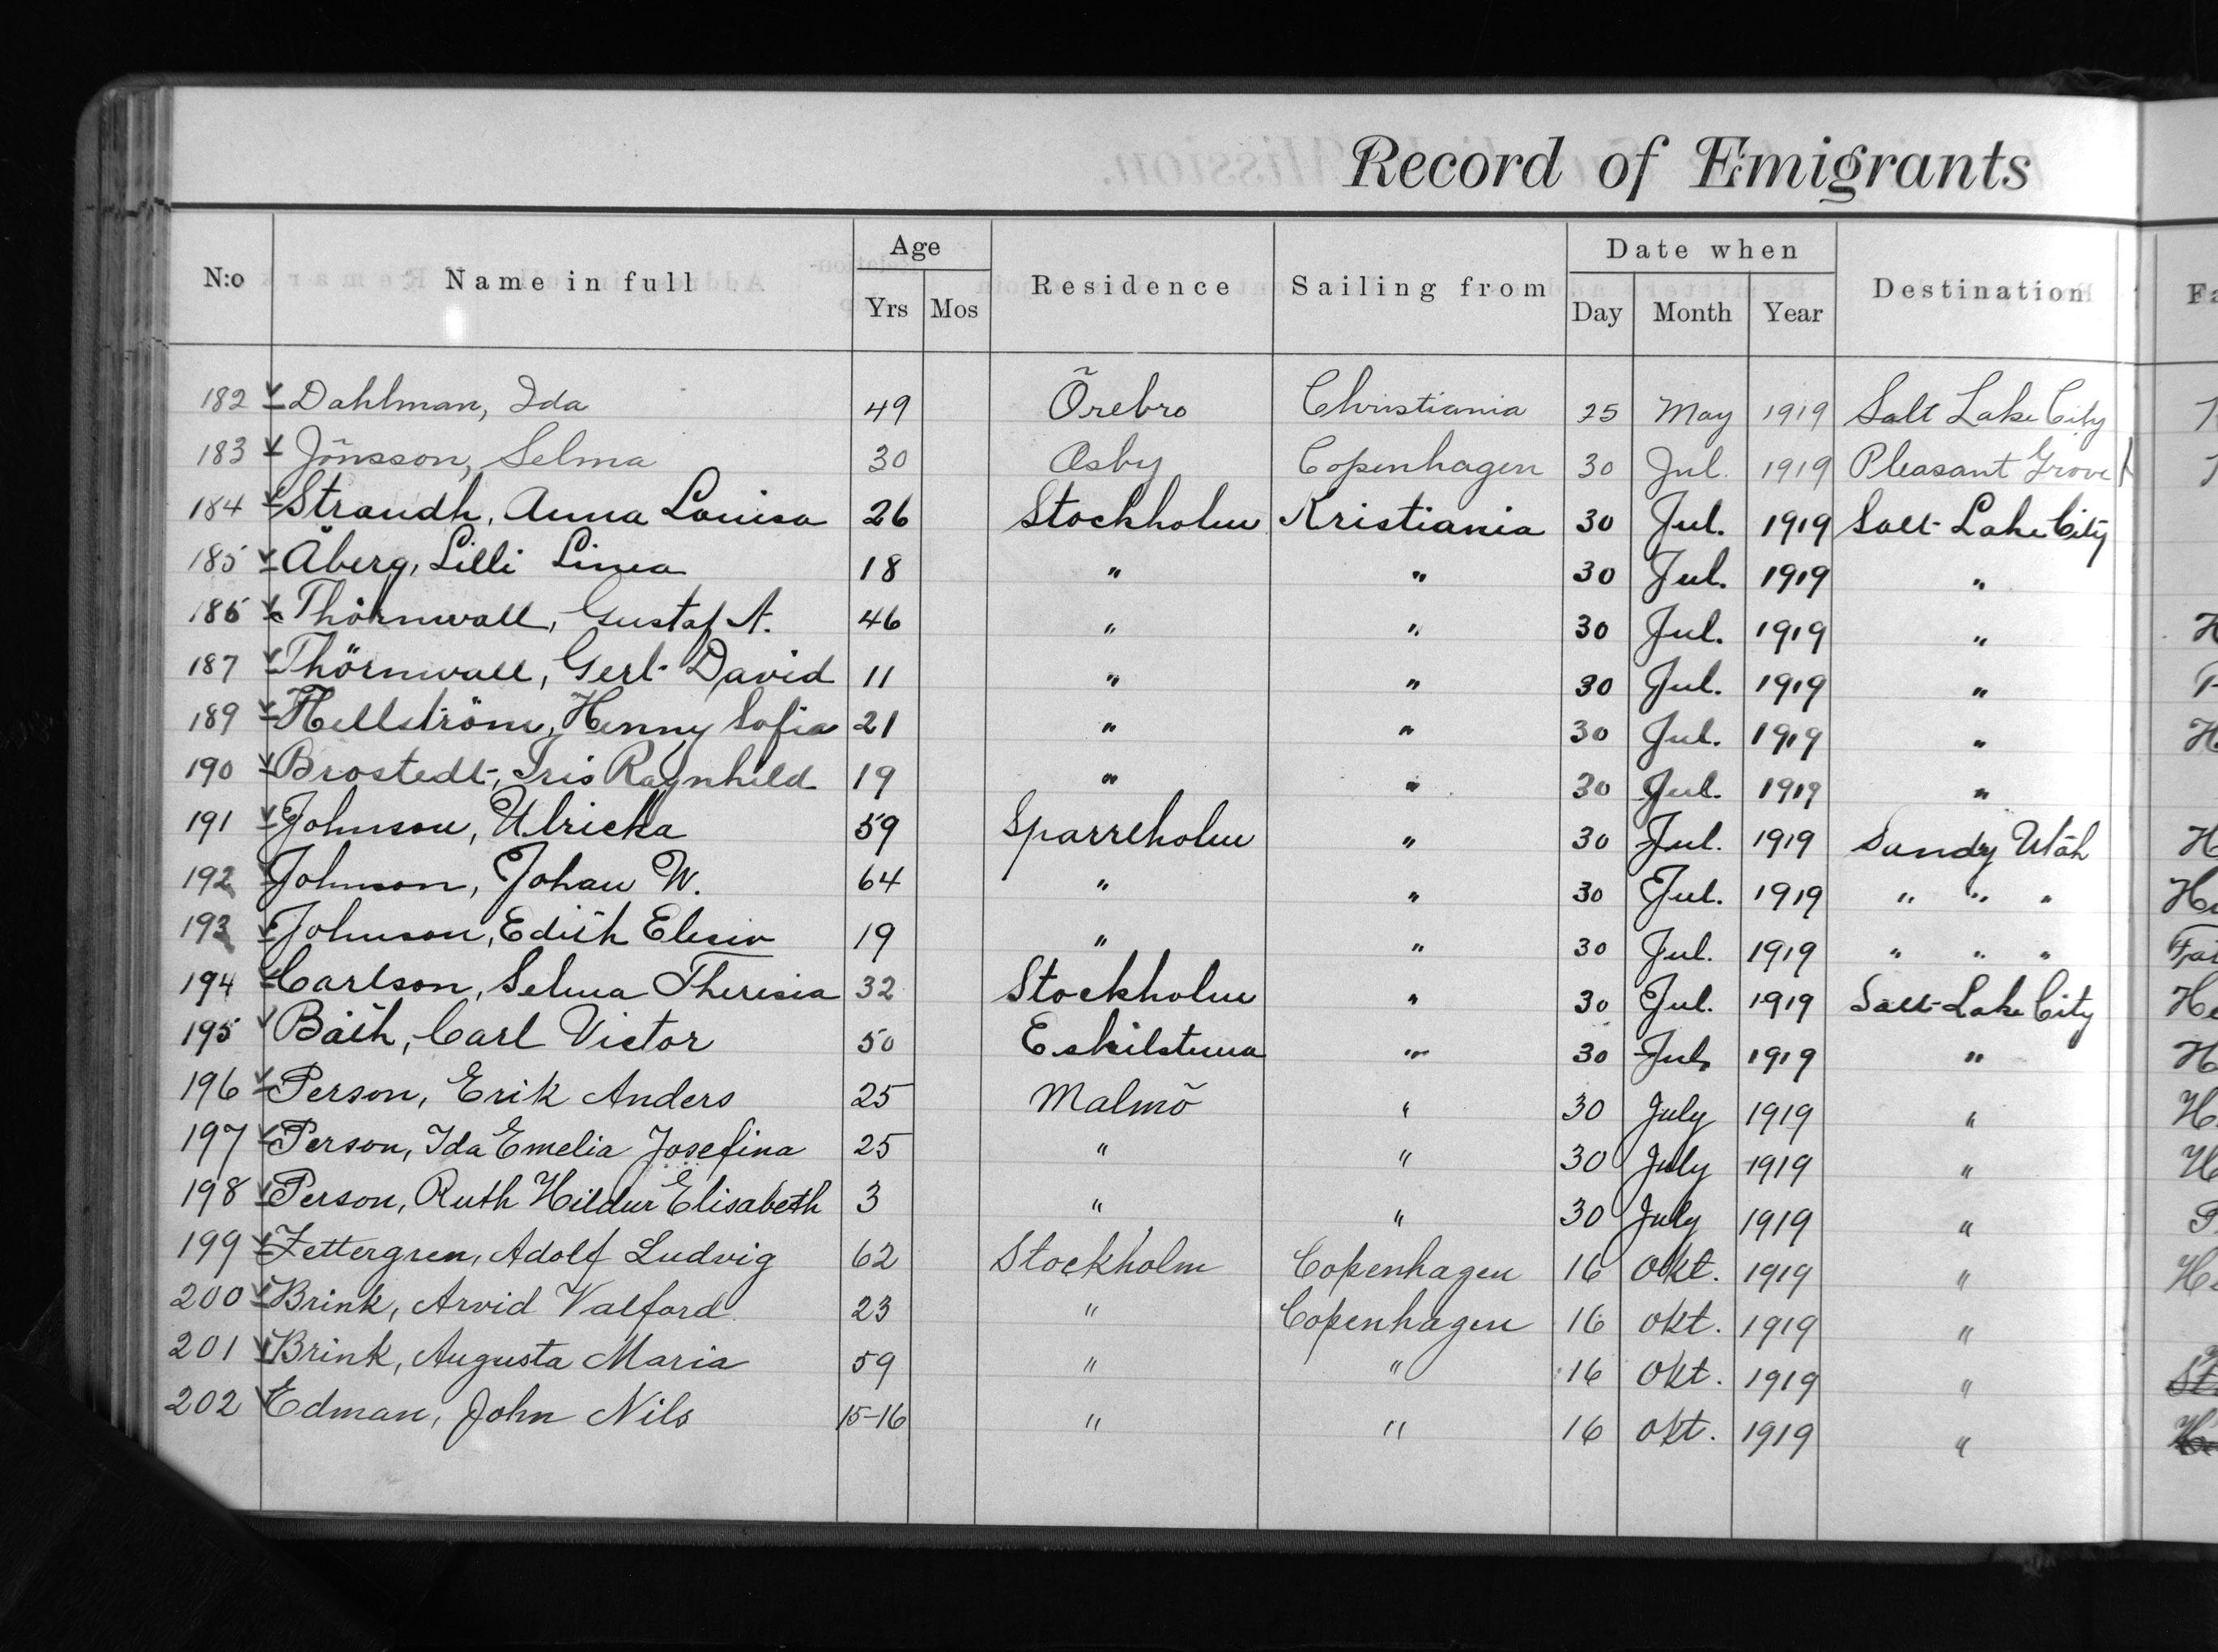 Record of Emigrants
N:o Name in full Age Yrs Mos Residence Sailing from Date when Day Month Year Destination
182 Dahlman, Ida 49 Örebro Christiania 25 May 1919 Salt Lake City
183 Jönsson, Selma 30 Osby Copenhagen 30 Jul. 1919 Pleasant Grove
184 Strandh, Anna Lovisa 26 Stockholm Kristiania 30 Jul. 1919 Salt Lake City
185 Åberg, Lilli Linea 18 " " 30 Jul. 1919 "
186 Thörnwall, Gustaf A. 46 " " 30 Jul. 1919 "
187 Thörnwall, Gert David 11 " " 30 Jul. 1919 "
189 Hellström, Henny Sofia 21 " " 30 Jul. 1919 "
190 Brostedt, Iris Ragnhild 19 " " 30 Jul. 1919 "
191 Johnson, Ulricka 59 Sparreholm " 30 Jul. 1919 Sandy Utah
192 Johnson, Johan W. 64 " " 30 Jul. 1919 " " "
193 Johnson, Edith 19 " " 30 Jul. 1919 " " "
194 Carlson, Selma Theresia 32 Stockholm " 30 Jul. 1919 Salt Lake City
195 Bååth, Carl Victor 50 Eskilstuna " 30 Jul. 1919 "
196 Person, Erik Anders 25 Malmö " 30 July 1919 "
197 Person, Ida Emelia Josefina 25 " " 30 July 1919 "
198 Person, Ruth Hildur Elisabeth 3 " " 30 July 1919 "
199 Zettergren, Adolf Ludvig 62 Stockholm Copenhagen 16 Okt. 1919 "
200 Brink, Arvid Valford 23 " Copenhagen 16 Okt. 1919 "
201 Brink, Augusta Maria 59 " " 16 Okt. 1919 "
202 Edman, John Nils 15-16 " " 16 Okt. 1919 "